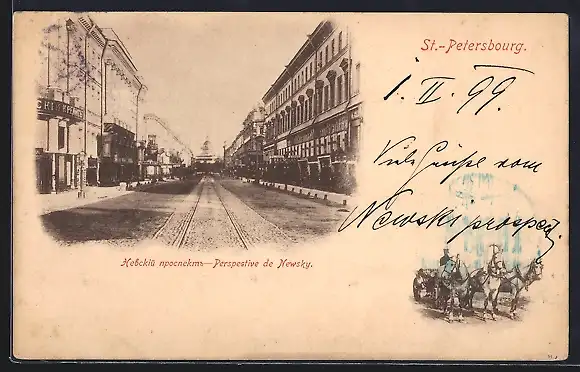 St.-Petersbourg.
1. II. 99.
Viele Grüße vom
Newski prospect.
Невскій проспектъ—Perspective de Newsky.